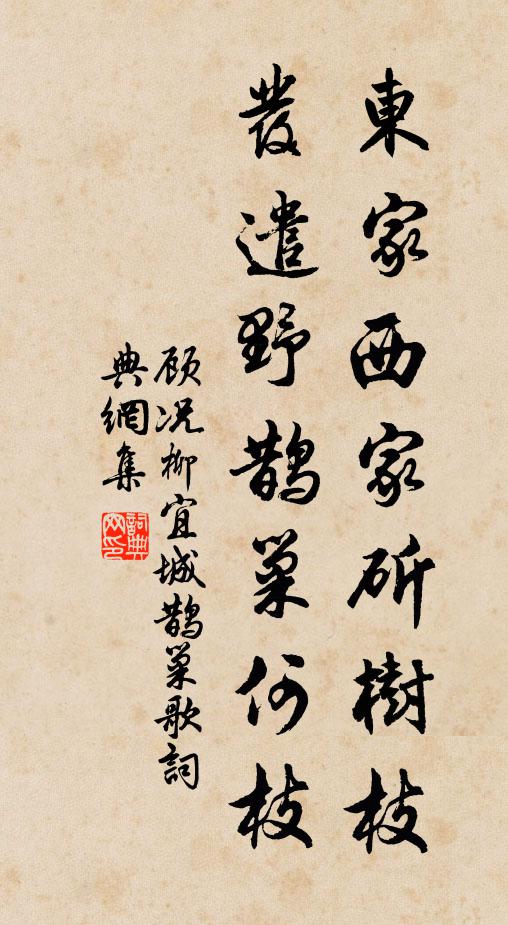 東家西家斫樹枝
發遣野鵲巢何枝
顾况柳宜城鵲巢歌詞
典網集
詞典
网印